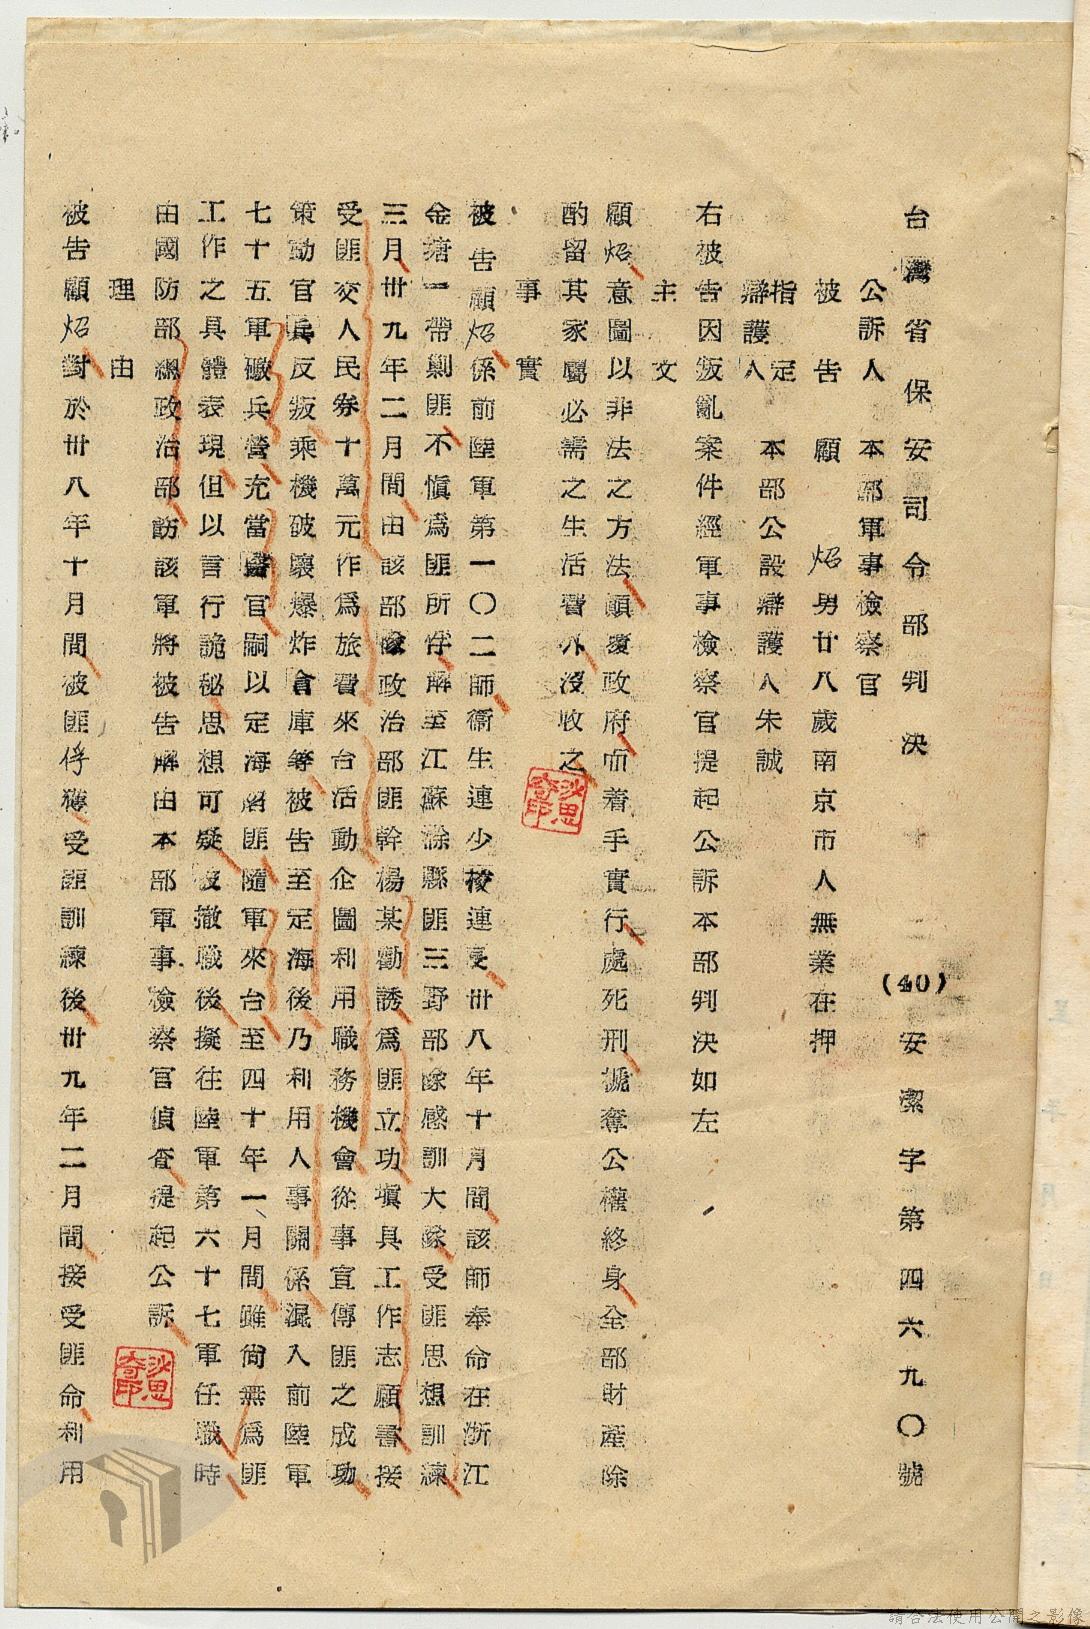 台灣省保安司令部判決 (40)安潔字第四六九〇號
公訴人 本部軍事檢察官
被告 顧炤男廿八歲南京市人無業在押
指定辯護人 本部公設辯護人朱誠
右被告因叛亂案件經軍事檢察官提起公訴本部判決如左
主文
顧炤意圖以非法之方法顛覆政府而着手實行處死刑褫奪公權終身全部財產除
酌留其家屬必需之生活費外沒收之
事實
被告顧炤係前陸軍第一〇二師衛生連少校連長卅八年十月間該師奉命在浙江
金塘一帶剿匪不慎為匪所俘解至江蘇滁縣匪三野部隊感訓大隊受匪思想訓練
三月卅九年二月間由該部隊政治部匪幹楊某勸誘為匪立功填具工作志願書接
受匪交人民券十萬元作為旅費來台活動企圖利用職務機會從事宣傳匪之成功
策動官兵反叛乘機破壞爆炸倉庫等被告至定海後乃利用人事關係混入前陸軍
七十五軍礮兵營充當醫官嗣以定海淪匪隨軍來台至四十年一月間雖尚無為匪
工作之具體表現但以言行詭秘思想可疑被撤職後擬往陸軍第六十七軍任職時
由國防部總政治部飭該軍將被告解由本部軍事檢察官偵查提起公訴
理由
被告顧炤對於卅八年十月間被匪俘獲受匪訓練後卅九年二月間接受匪命利用
沙思奇印
沙思奇印
請合法使用公開之影像